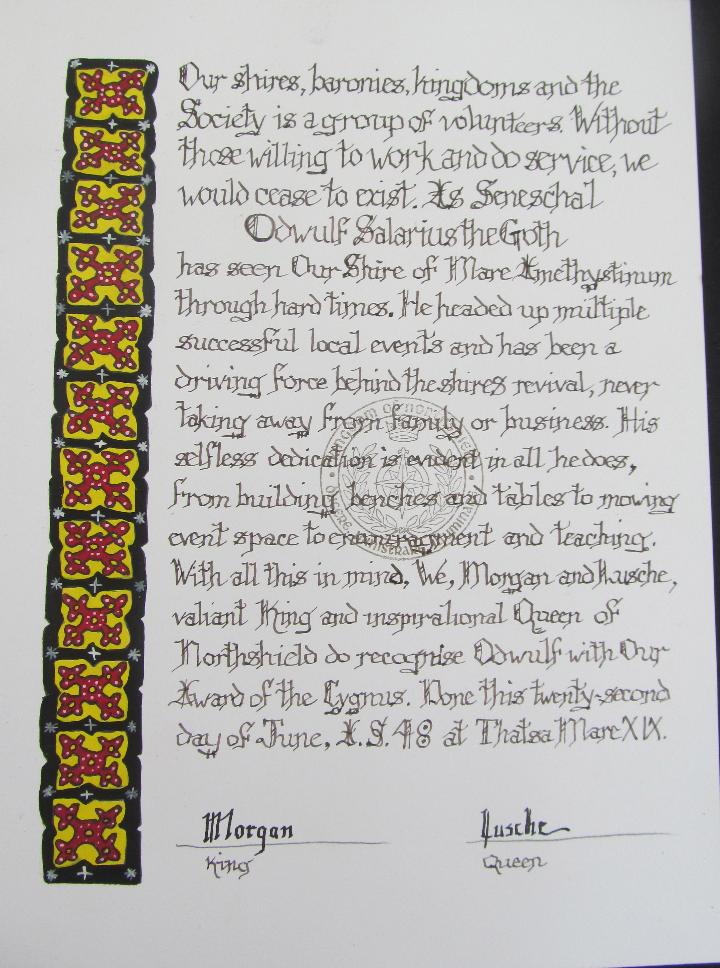 Our shires, baronies, kingdoms and the
Society is a group of volunteers. Without
those willing to work and do service, we
would cease to exist. As Seneschal
Odwulf Salarius the Goth
has seen Our Shire of Mare Amethystinum
through hard times. He headed up multiple
successful local events and has been a
driving force behind the shires revival, never
taking away from family or business. His
selfless dedication is evident in all he does,
from building benches and tables to mowing
event space to encouragment and teaching.
With all this in mind, We, Morgan and Lusche,
valiant King and inspirational Queen of
Northshield do recognise Odwulf with Our
Award of the Cygnus. Done this twenty-second
day of June, A.S. 48 at Thatsa Mare XIX.
Morgan Lusche
King Queen